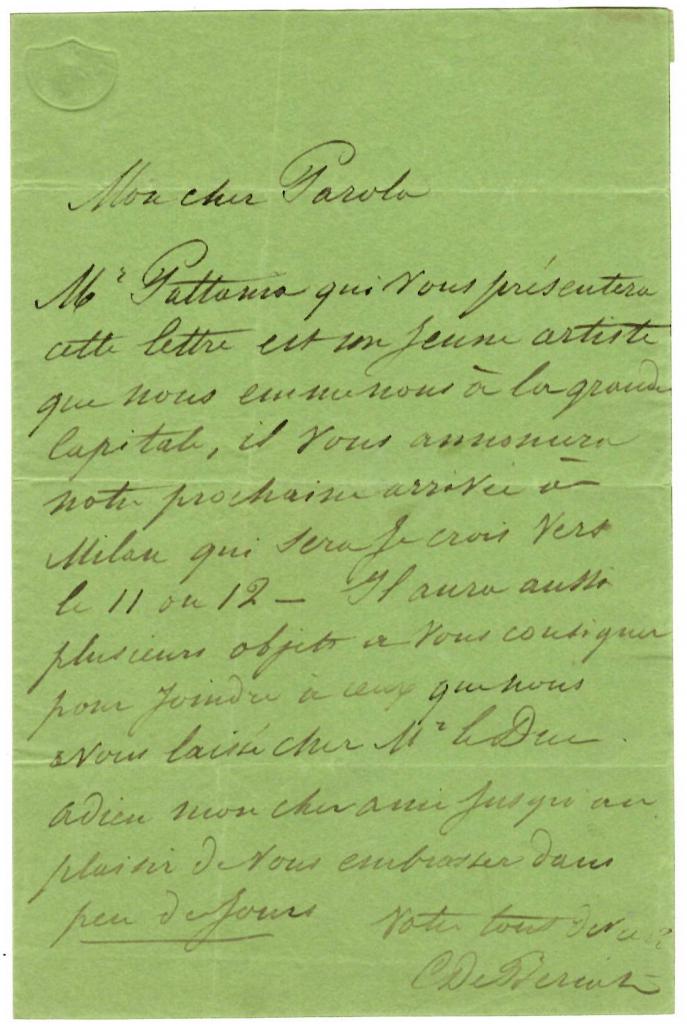 Mon cher Parola
Mr Pattania qui vous présentera
cette lettre est un jeune artiste
que nous emmenons à la grande
Capitale, il vous annoncera
notre prochaine arrivée à
Milan qui sera je crois vers
le 11 ou 12 – Il aura aussi
plusieurs objets a vous consigner
pour joindre à ceux que nous
avons laissé cher Mr le Duc.
adieu mon cher ami jusqu'au
plaisir de vous embrasser dans
peu de jours Votre tout dévoué
C De Beriot